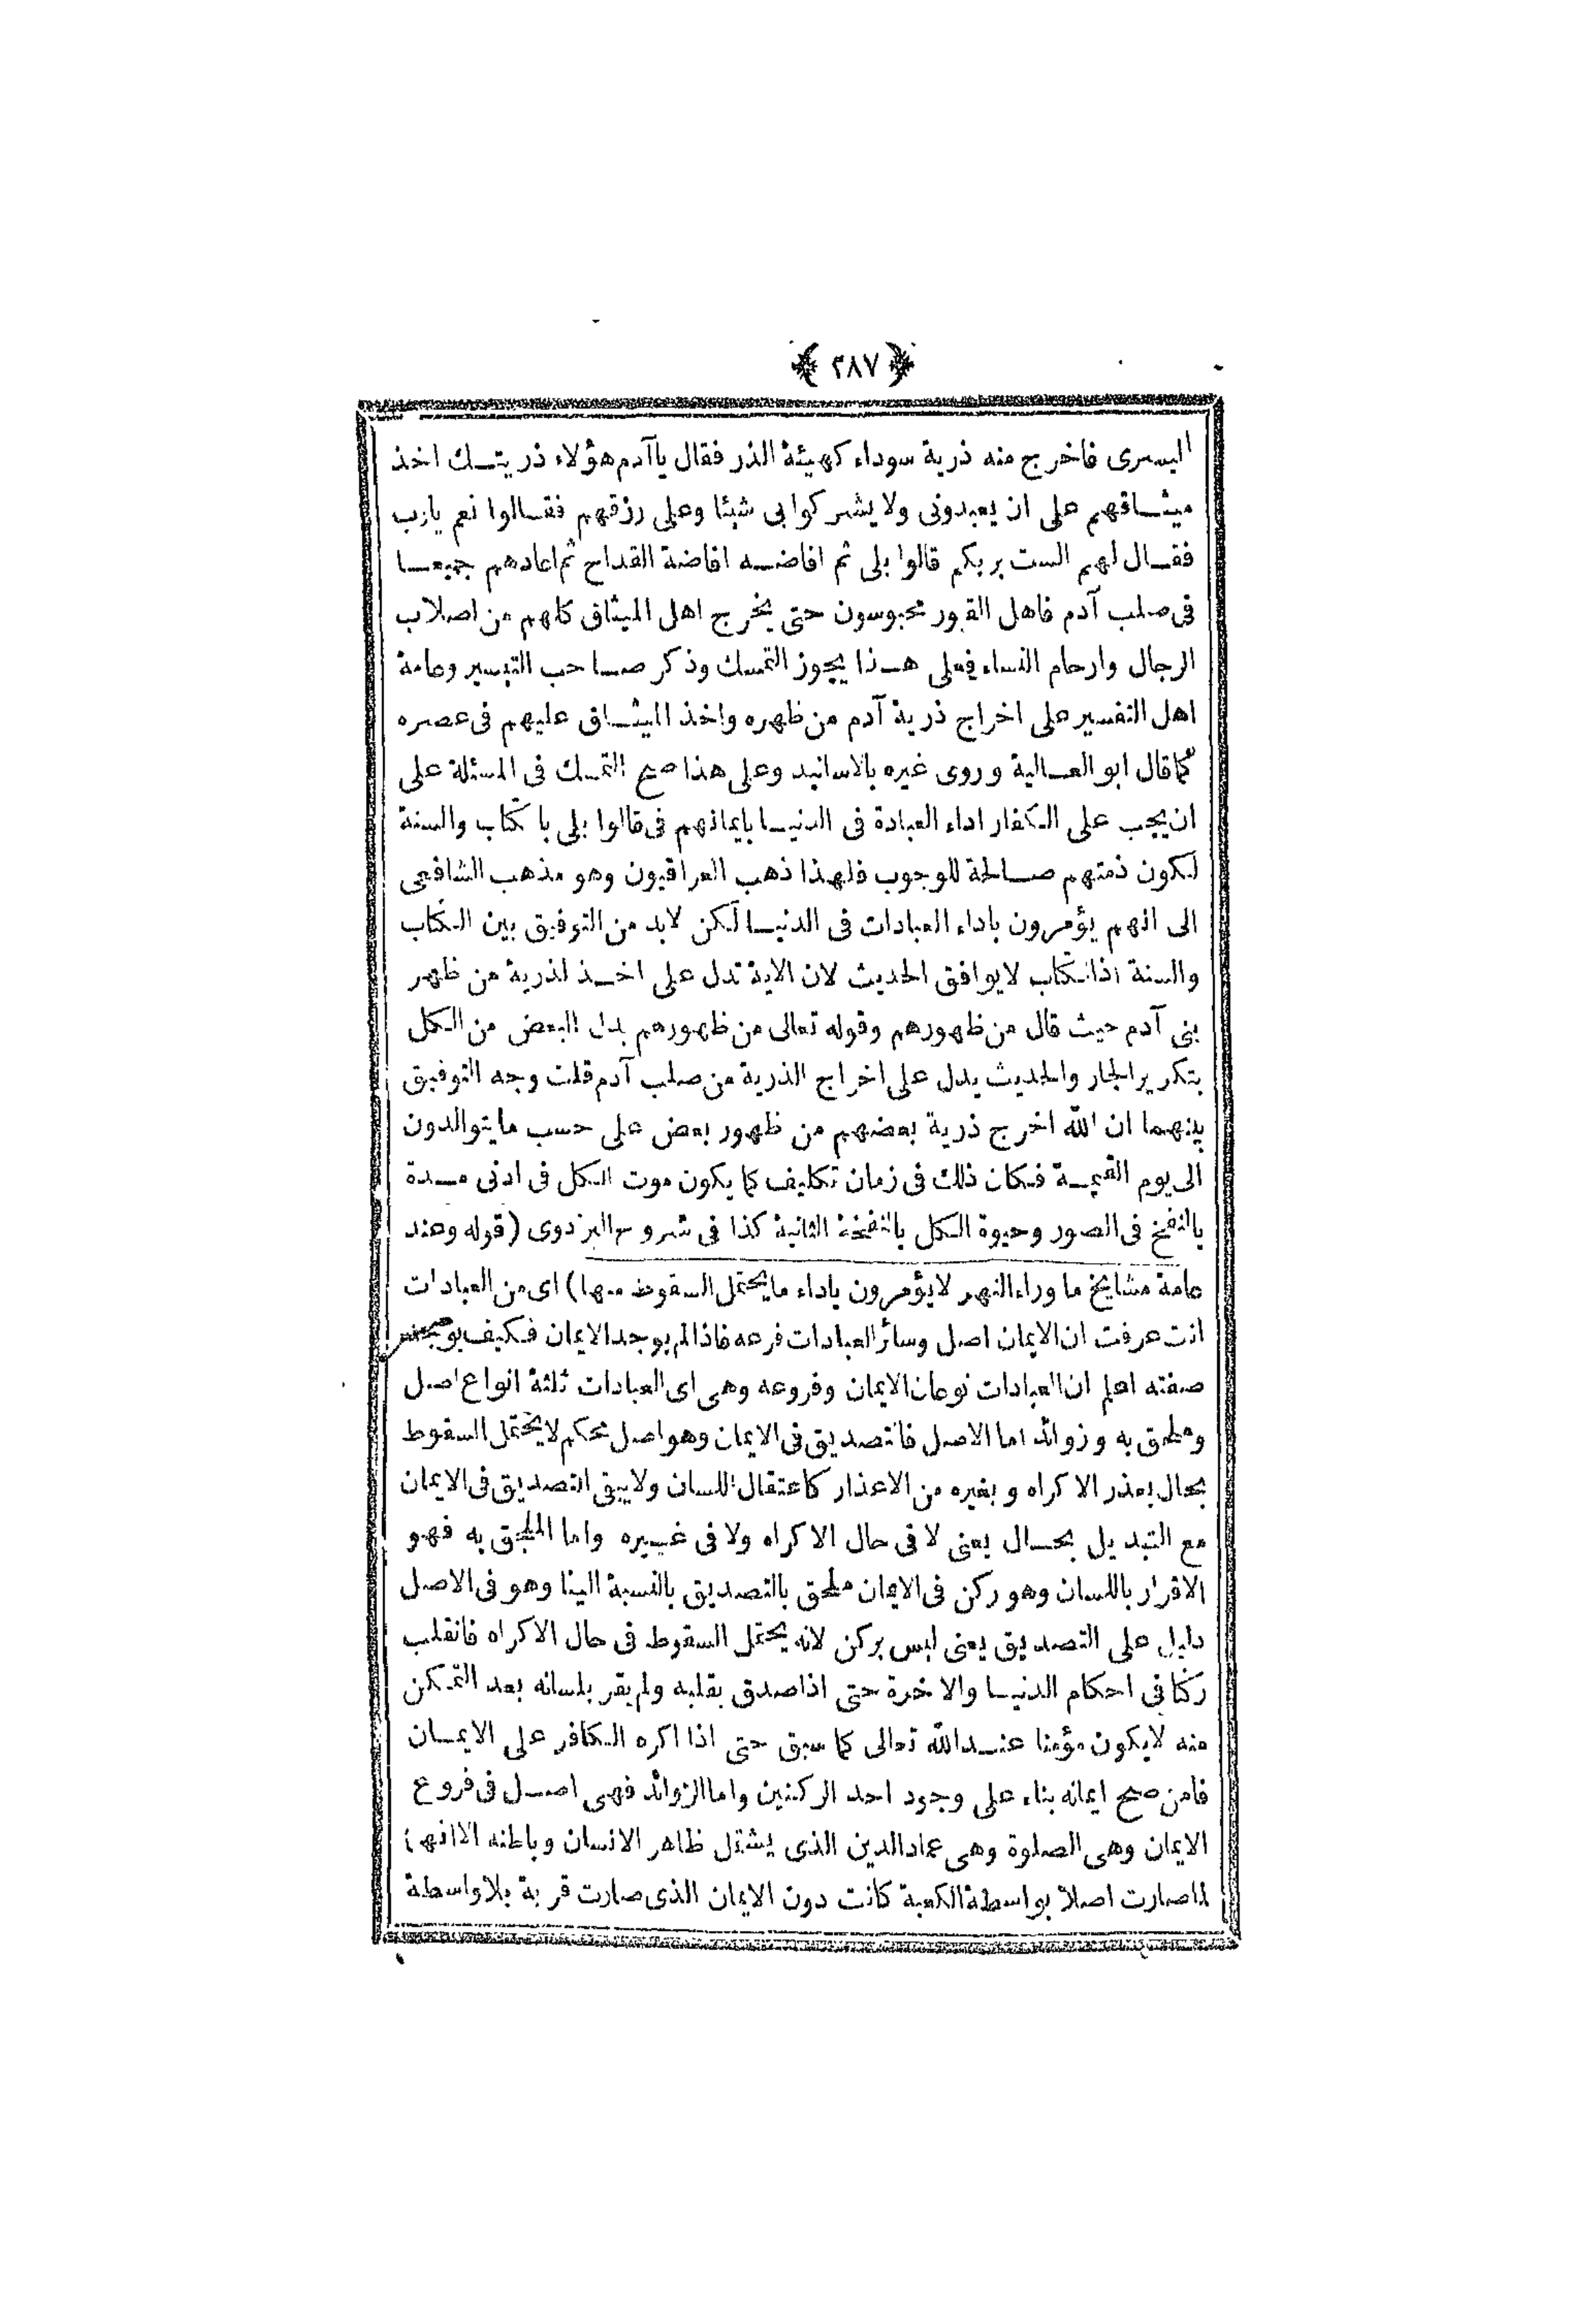 ﴿ ٢٨٧ ﴾
اليسرى فاخرج منه ذرية سوداء كهيئة الذر فقال ياآدم هؤلاء ذريتك اخذ
ميثاقهم على ان يعبدونى ولا يشركوا بى شيئا وعلى رزقهم فقالوا نعم يارب
فقال لهم الست بربكم قالوا بلى ثم افاضه افاضة القداح ثم اعادهم جميعا
فى صلب آدم فاهل القبور محبوسون حتى يخرج اهل الميثاق كلهم من اصلاب
الرجال وارحام النساء فعلى هذا يجوز التمسك وذكر صاحب التيسير وعامة
اهل التفسير على اخراج ذرية آدم من ظهره واخذ الميثاق عليهم فى عصره
كما قال ابو العالية وروى غيره بالاسانيد وعلى هذا صح التمسك فى المسئلة على
ان يجب على الكفار اداء العبادة فى الدنيا بايمانهم فى قالوا بلى با كتاب والسنة
لكون ذمتهم صالحة للوجوب فلهذا ذهب العراقيون وهو مذهب الشافعى
الى انهم يؤمرون باداء العبادات فى الدنيا لكن لابد من التوفيق بين الكتاب
والسنة اذ الكتاب لايوافق الحديث لان الاية تدل على اخذ لذرية من ظهر
بنى آدم حيث قال من ظهورهم وقوله تعالى من ظهورهم بدل البعض من الكل
بتكرير الجار والحديث يدل على اخراج الذرية من صلب آدم قلت وجه التوفيق
بينهما ان الله اخرج ذرية بعضهم من ظهور بعض على حسب مايتوالدون
الى يوم القيمة فكان ذلك فى زمان تكليف كما يكون موت الكل فى ادنى مدة
بالنفخ فى الصور وحيوة الكل بالنفخة الثانية كذا فى شروح البزدوى (قوله وعند
عامة مشايخ ما وراء النهر لايؤمرون باداء مايحتمل السقوط منها) اى من العبادات
انت عرفت ان الايمان اصل وسائر العبادات فرعه فاذا لم يوجد الايمان فكيف يوجد
صفته اعلم ان العبادات نوعان الايمان وفروعه وهى اى العبادات ثلثة انواع اصل
وملحق به وزوائد اما الاصل فالتصديق فى الايمان وهو اصل محكم لايحتمل السقوط
بحال بعذر الاكراه وبغيره من الاعذار كاعتقال اللسان ولايبقى التصديق فى الايمان
مع التبديل بحال يعنى لا فى حال الاكراه ولا فى غيره واما الملحق به فهو
الاقرار باللسان وهو ركن فى الايمان ملحق بالتصديق بالنسبة الينا وهو فى الاصل
دليل على التصديق يعنى ليس بركن لانه يحتمل السقوط فى حال الاكراه فانقلب
ركنا فى احكام الدنيا والاخرة حتى اذا صدق بقلبه ولم يقر بلسانه بعد التمكن
منه لايكون مؤمنا عند الله تعالى كما سبق حتى اذا اكره الكافر على الايمان
فامن صح ايمانه بناء على وجود احد الركنين واما الزوائد فهى اصل فى فروع
الايمان وهى الصلوة وهى عماد الدين الذى يشتمل ظاهر الانسان وباطنه الا انها
لما صارت اصلا بواسطة الكعبة كانت دون الايمان الذى صارت قربة بلا واسطة